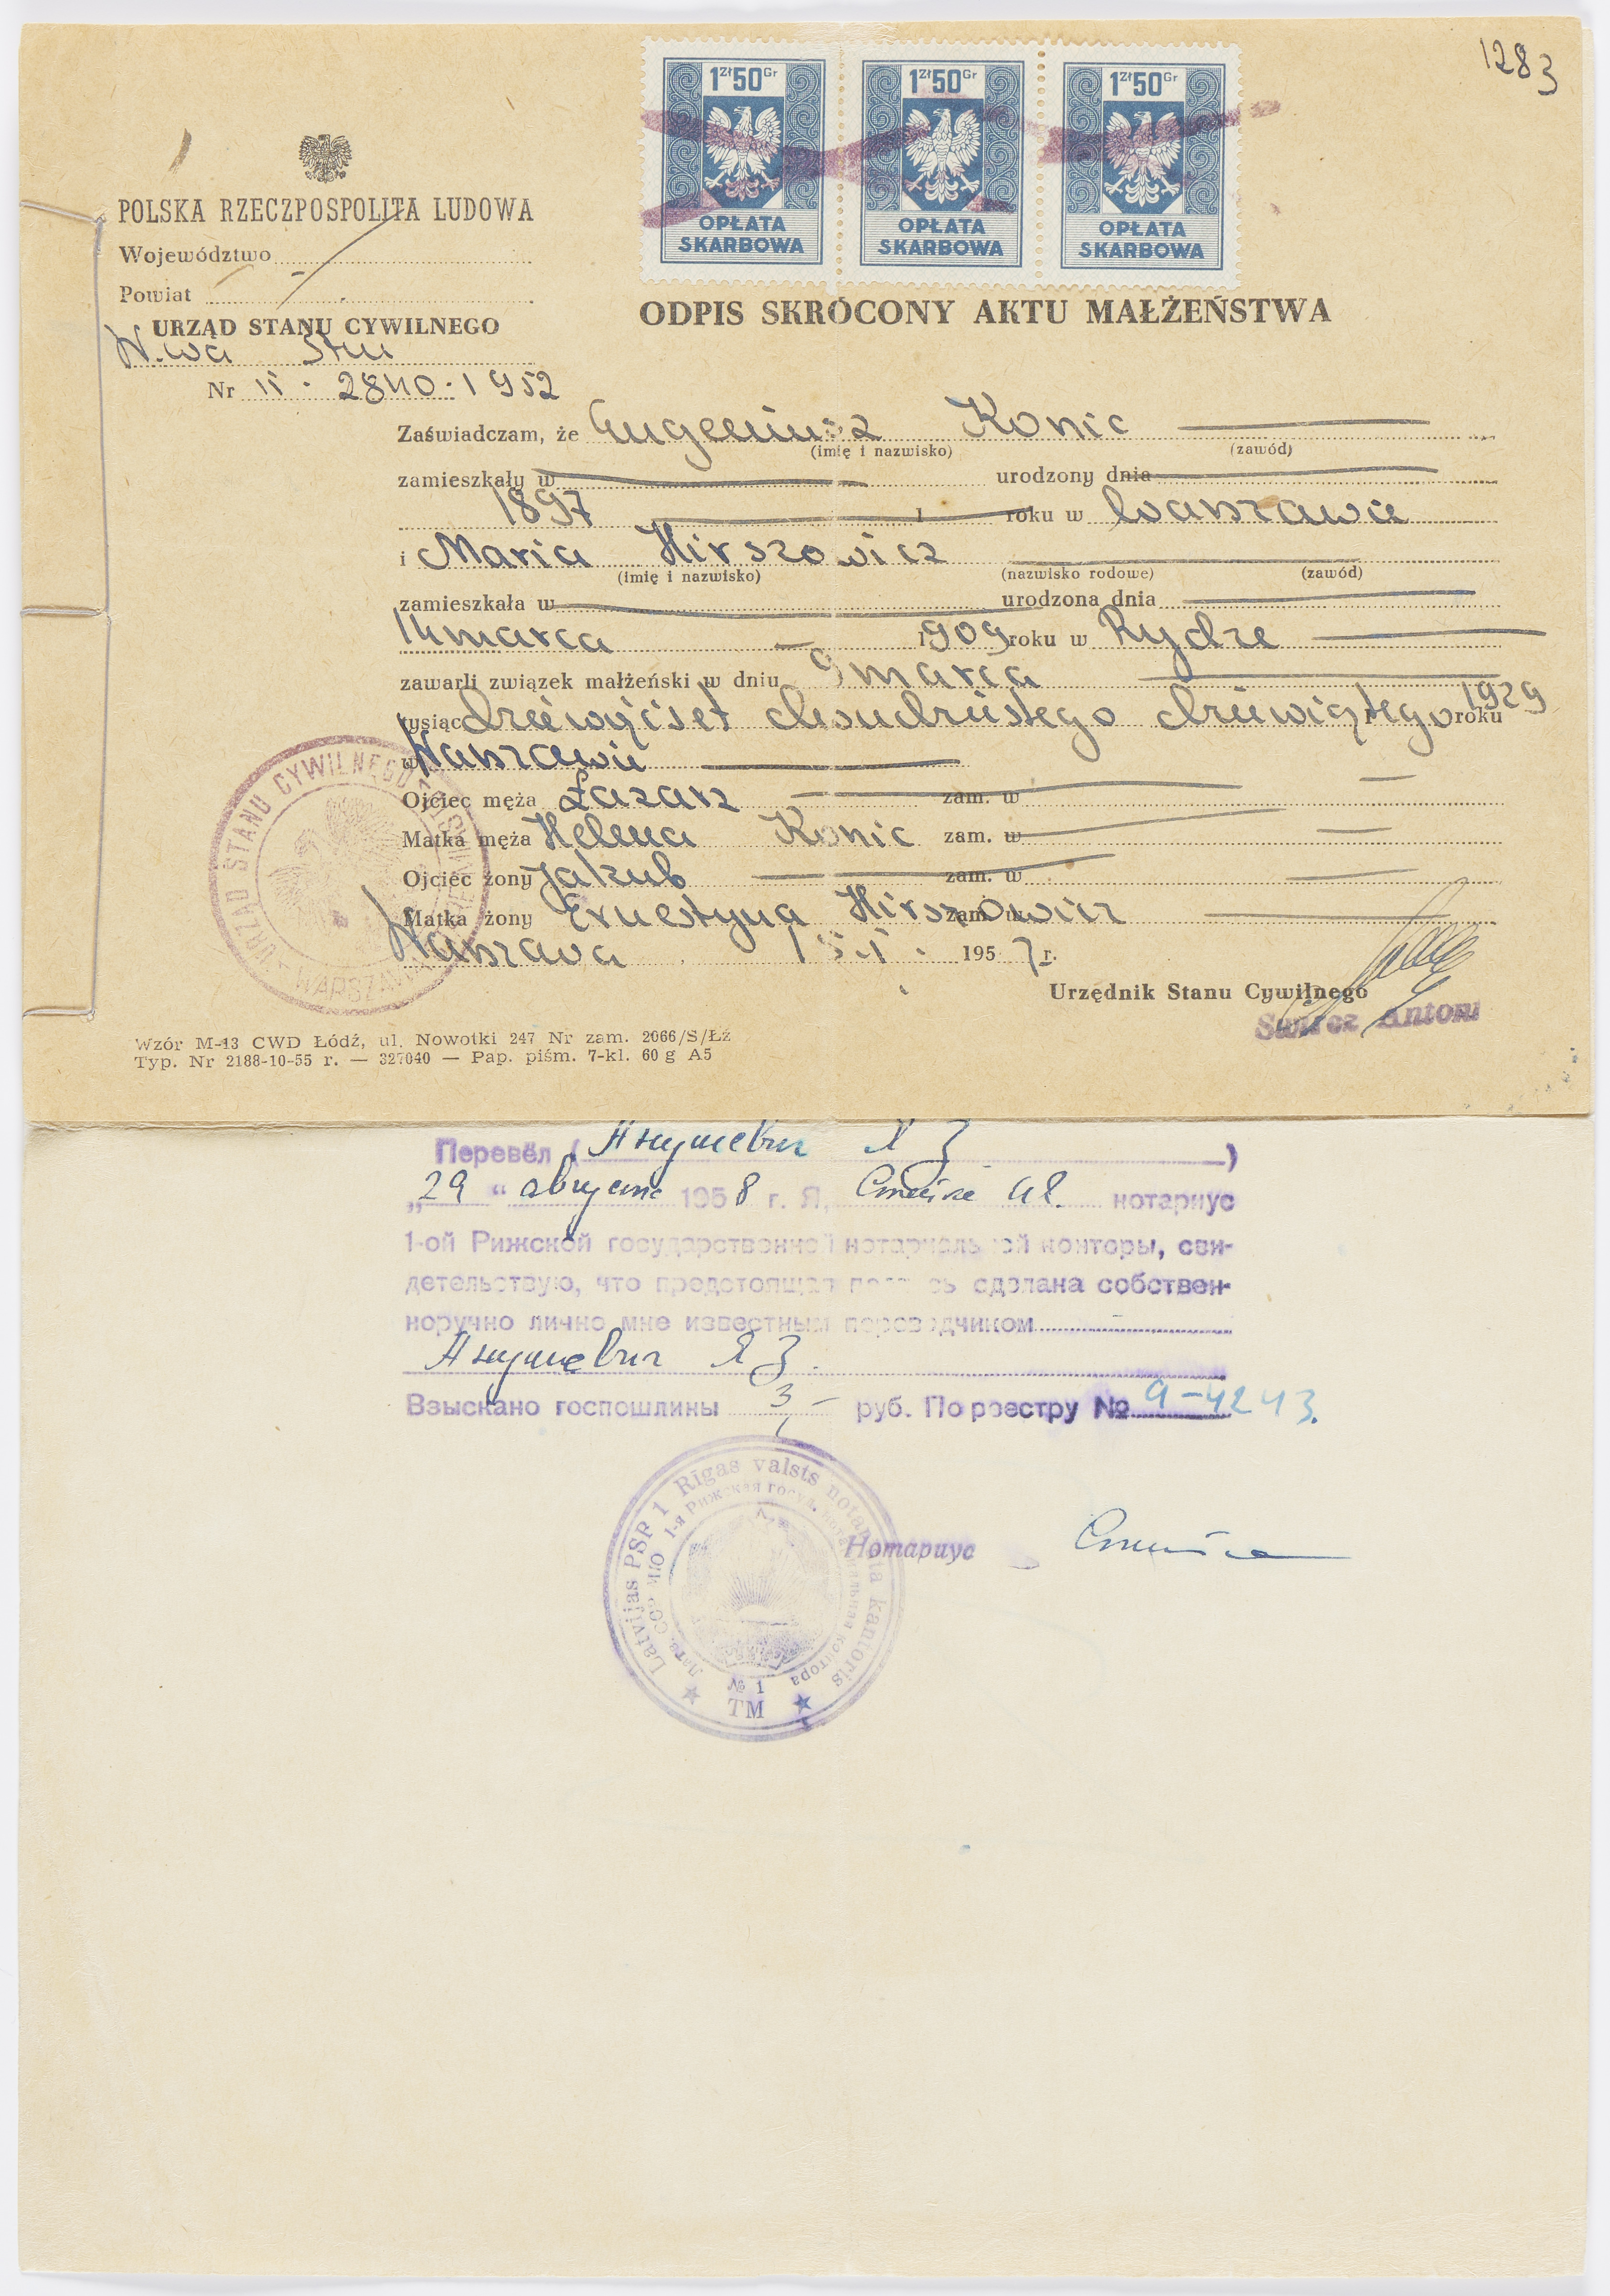 1283
1 Zł 50 Gr 1 Zł 50 Gr 1 Zł 50 Gr
OPŁATA SKARBOWA OPŁATA SKARBOWA OPŁATA SKARBOWA
POLSKA RZECZPOSPOLITA LUDOWA
Województwo
Powiat
URZĄD STANU CYWILNEGO
W-wa
Nr II - 2840 - 1952
ODPIS SKRÓCONY AKTU MAŁŻEŃSTWA
Zaświadczam, że Eugeniusz Konic
(imię i nazwisko) (zawód)
zamieszkały w urodzony dnia
1897 1 roku w Warszawie
i Maria Hirszowicz
(imię i nazwisko) (nazwisko rodowe) (zawód)
zamieszkała w urodzona dnia
14 marca 1909 roku w Rydze
zawarli związek małżeński w dniu 9 marca
tysiąc dziewięćset dwudziestego dziewiątego roku 1929
w Warszawie
Ojciec męża Łazarz zam. w
Matka męża Helena Konic zam. w
Ojciec żony Jakub zam. w
Matka żony Ernestyna Hirszowicz zam. w
Warszawa 15.I. 1957 r.
Urzędnik Stanu Cywilnego
Antoni
URZĄD STANU CYWILNEGO WARSZAWA
Wzór M-13 CWD Łódź, ul. Nowotki 247 Nr zam. 2066/S/Łź
Typ. Nr 2188-10-55 r. — 327040 — Pap. piśm. 7-kl. 60 g A5
Перевёл ( Янушевич Я З )
„29“ августа 1958 г. Я, нотариус
1-ой Рижской государственной нотариальной конторы, сви-
детельствую, что предстоящая подпись сделана собствен-
норучно лично мне известным переводчиком
Янушевич Я З.
Взыскано госпошлины 3 — руб. По реестру № 9-4243.
Нотариус
Latvijas PSR 1 Rīgas valsts notariāta kantoris
Латв. ССР МЮ 1-я Рижская госуд. нотариальная контора
№ 1
TM